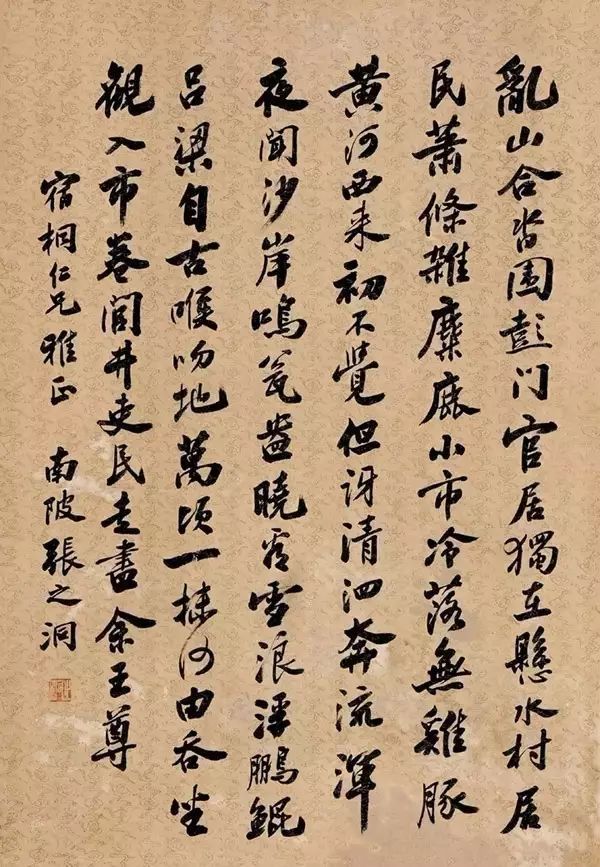 亂山合沓圍彭門官居獨在懸水村居
民蕭條雜麋鹿小市冷落無雞豚
黃河西来初不覺但訝清泗奔流渾
夜聞沙岸鳴瓮盎曉看雪浪浮鵬鯤
呂梁自古喉吻地萬頃一抹何由吞坐
觀入市卷閭井吏民走盡余王尊
宿桐仁兄雅正 南陂張之洞